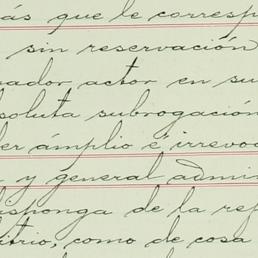 ás que le corresp
sin reservación
ador actor en su
soluta subrogación
er ámplio é irrevoc
y general admin
isponga de la re
itrio, como de cosa